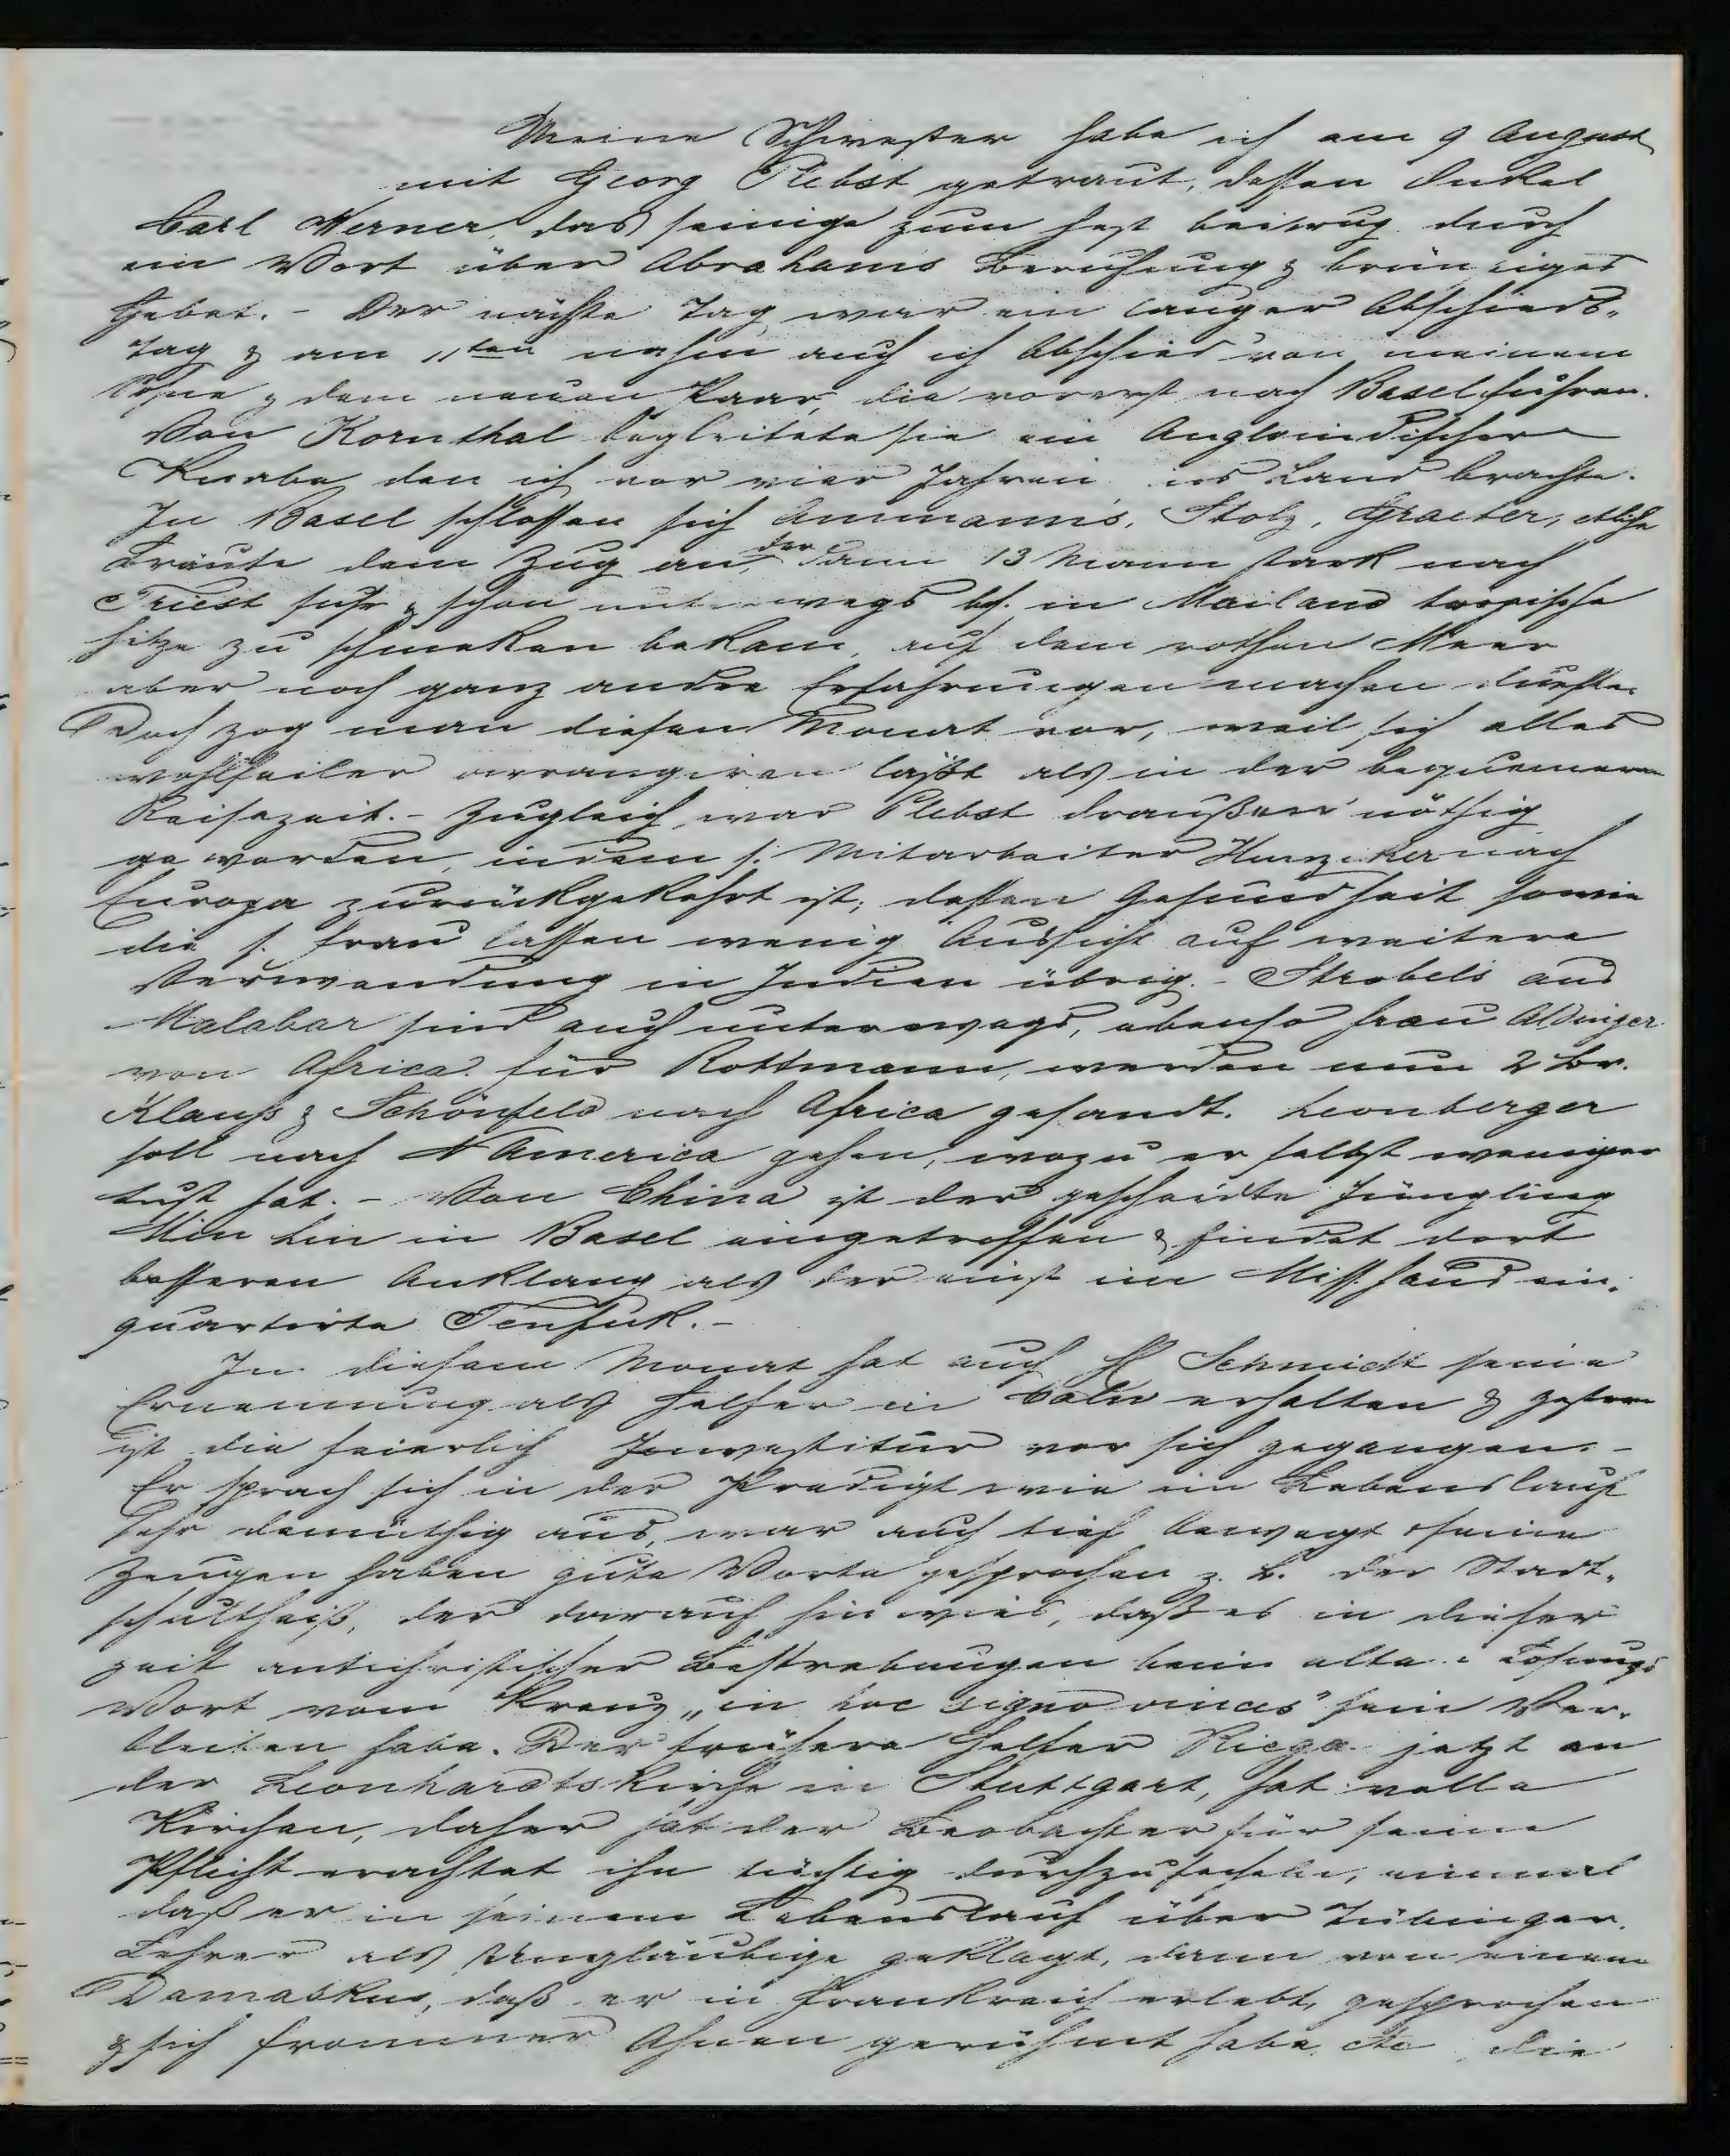 Meine Schwester habe ich am 9 August
mit Georg Plebst getraut, dessen Onkel
Carl Werner, das seinige zum Fest beitrug durch
ein Wort über Abrahams Berufung & brünstiges
Gebet. - Der nächste Tag war ein langer Abschieds-
tag & am 11ten nahm auch ich Abschied von meinem
Sohne & dem neuen Paar, die vorerst nach Basel fuhren.
Von Kornthal begleitete sie ein Angloindischer
Knabe, den ich vor vier Jahren ins Land brachte.
In Basel schlossen sich Ammanns, Stolz, Graeter, etliche
Bräute dem Zug an, der dann 13 Mann stark nach
Triest fuhr & schon unterwegs bes. in Mailand tropische
Hitze zu schmeken bekam, auf dem rothen Meer
aber noch ganz andre Erfahrungen machen dürfte.
Doch zog man diesen Monat vor, weil sich alles
wohlfeiler arrangiren läßt als in der bequemeren
Reisezeit. - Zugleich war Plebst draußen nöthig
geworden, indem s. Mitarbeiter Hunziker nach
Europa zurückgekehrt ist; dessen Gesundheit sowie
die s. Frau lassen wenig Aussicht auf weitere
Verwendung in Indien übrig. - Strobels aus
Malabar sind auch unterwegs, ebenso Frau Aldinger
von Africa. für Rottmann, werden nun 2 Br.
Klauß & Schönfeld nach Africa gesandt. Leonberger
soll nach N America gehen, wozu er selbst weniger
Lust hat. - Von China ist der gescheidte Jüngling
Min Lin in Basel eingetroffen & findet dort
besseren Anklang als der einst im Miss.haus ein-
quartirte Tenfuk. -
In diesem Monat hat auch H Schmidt seine
Ernennung als Helfer in Calw erhalten & gestern
ist die feierlich Investitur vor sich gegangen. -
Er sprach sich in der Predigt wie im Lebenslauf
sehr demüthig aus, war auch tief bewegt & seine
Zeugen haben gute Worte gesprochen z. B. der Stadt-
schultheiß, der darauf hinwies, daß es in dieser
Zeit antichristischer Bestrebungen beim alten Losungs
Wort vom Kreuz „in hoc signo vinces" sein Ver-
bleiben habe. Der frühere Helfer Rieger jetzt an
der Leonhardtskirche in Stuttgart, hat volle
Kirchen, daher hat der Beobachter für seine
Pflicht erachtet ihn tüchtig durchzuhecheln, einmal
daß er in seinem Lebenslauf über Tübinger
Lehrer als Ungläubige geklagt, dann von einem
Damaskus, daß er in Frankreich erlebt, gesprochen
& sich frommer Ahnen gerühmt habe etc die